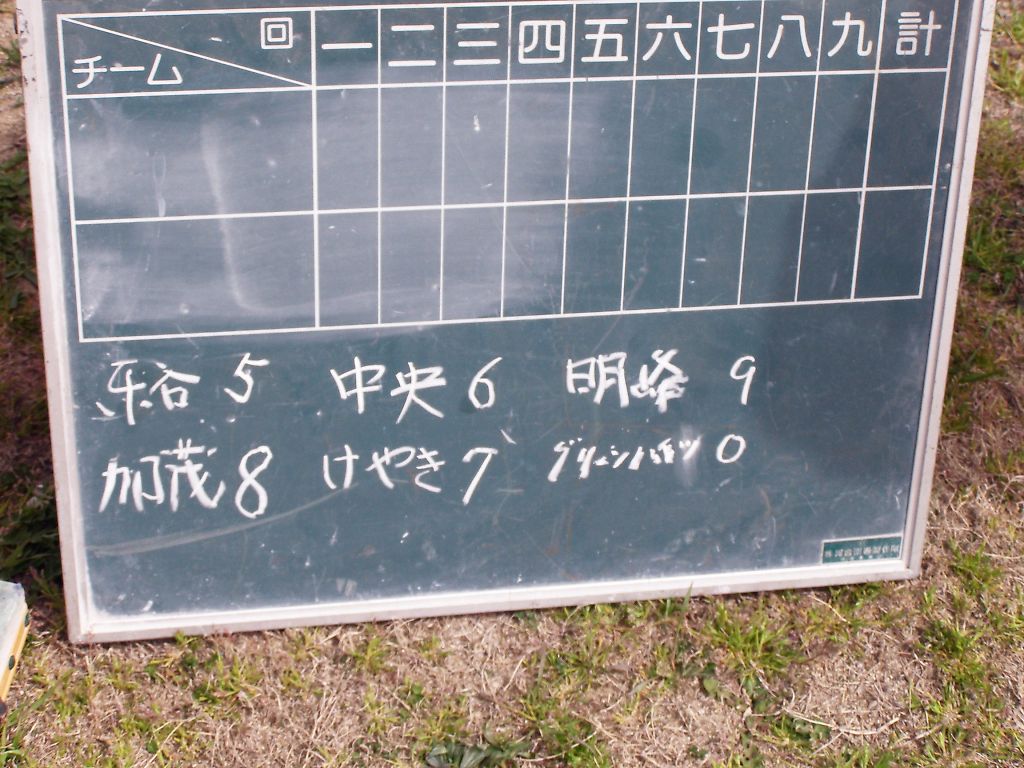 回 一 二 三 四 五 六 七 八 九 計
チーム
谷 5 中央 6 明峰 9
加茂 8 けやき 7 グリーンハイツ 0